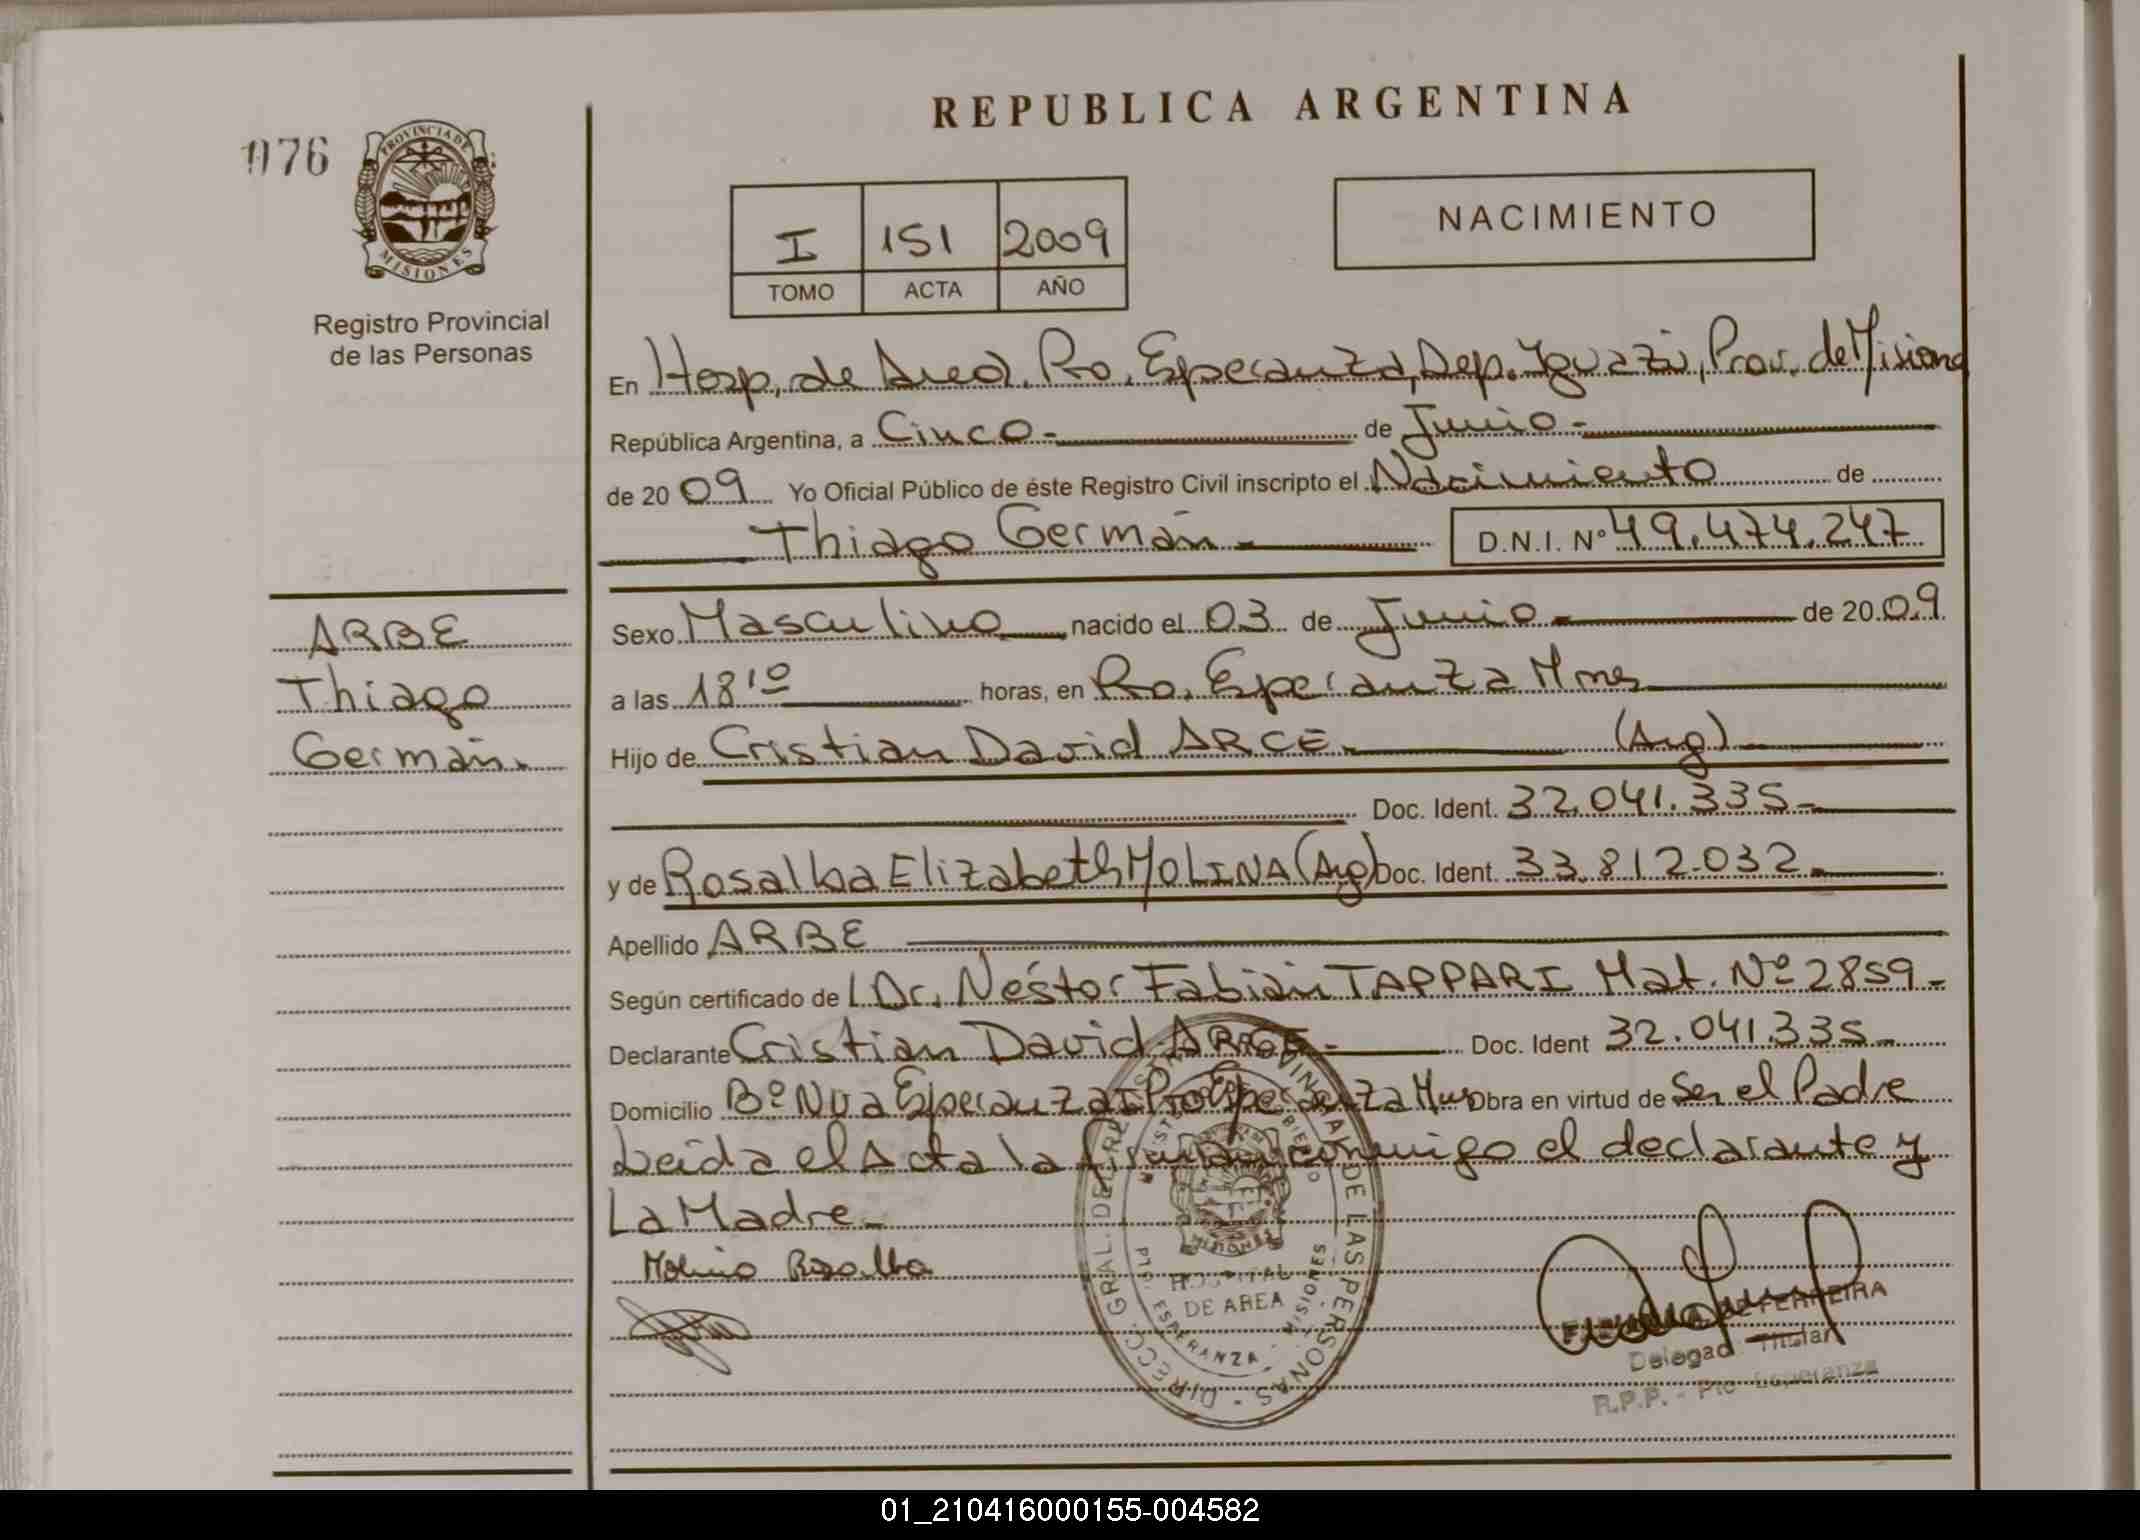 REPUBLICA ARGENTINA
076
PROVINCIA DE
MISIONES
Registro Provincial
de las Personas
I 151 2009
TOMO ACTA AÑO
NACIMIENTO
En Hosp. de Area. Pto. Esperanza, Dep. Iguazú, Prov. de Misiones
República Argentina, a Cinco.- de Junio.-
de 2009 Yo Oficial Público de éste Registro Civil inscripto el Nacimiento de
Thiago Germán.- D.N.I. Nº 49.474.247
ARBE
Thiago
Germán.
Sexo Masculino nacido el 03 de Junio.- de 2009.
a las 18'10 horas, en Pto. Esperanza Mnes
Hijo de Cristian David ARCE.- (Arg).-
Doc. Ident. 32.041.335.-
y de Rosalba Elizabeth MOLINA (Arg) Doc. Ident. 33.812.032.-
Apellido ARBE
Según certificado de Dr. Néstor Fabián TAPPARI Mat. Nº 2859-
Declarante Cristian David Doc. Ident 32.041.335.-
Domicilio Bº Nva Esperanza Pto Esperanza Obra en virtud de Ser el Padre
Leida el Acta la firman conmigo el declarante y
La Madre.-
Molina Rosalba
DIRECC. GRAL. DEL REGISTRO PROVINCIAL DE LAS PERSONAS
MISIONES
HOSPITAL
DE AREA
PTO. ESPERANZA - MISIONES
FERREIRA
Delegad Titular
R.P.P. - Pto Esperanza
01_210416000155-004582